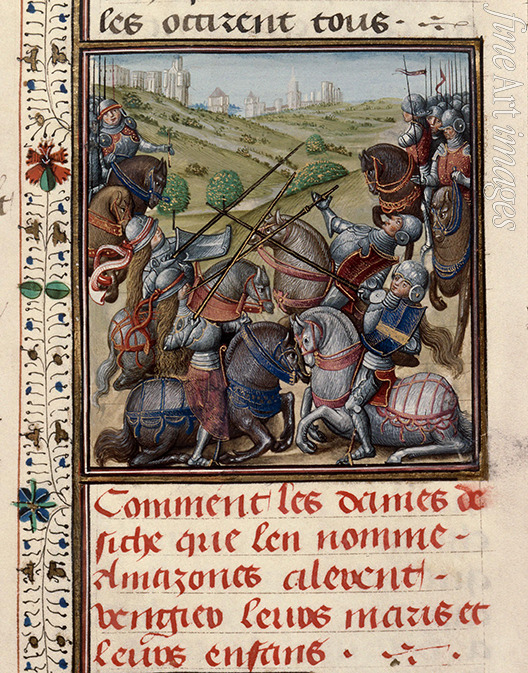 les occirent tous .
Comment les dames de
siche que len nomme -
Amazones alerent -
vengier leurs maris et
leurs enfans .
fine Art images